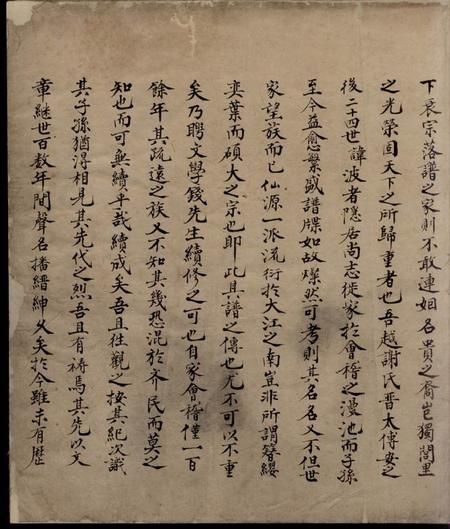 下衰宗落譜之家則不敢連姻名貴之裔豈獨閭里
之光榮固天下之所歸重者也吾越謝氏晉太傅安之
後二十四世諱波者隱居尚志徙家於會稽之漫池而子孫
至今益愈繁盛譜牒如故燦然可考則其名名又不但世
家望族而已仙源一派流衍於大江之南豈非所謂簪纓
奕葉而碩大之宗也即此其譜之傳也尤不可以不重
矣乃聘文學錢先生續修之可也自家會稽僅一百
餘年其疏遠之族又不知其幾恐混於齊民而莫之
知也而可無續乎哉續成矣吾且往觀之按其紀次識
其子孫猶得相見其先代之烈吾且有禱焉其先以文
章継世百數年間聲名播縉紳久矣於今雖未有歷